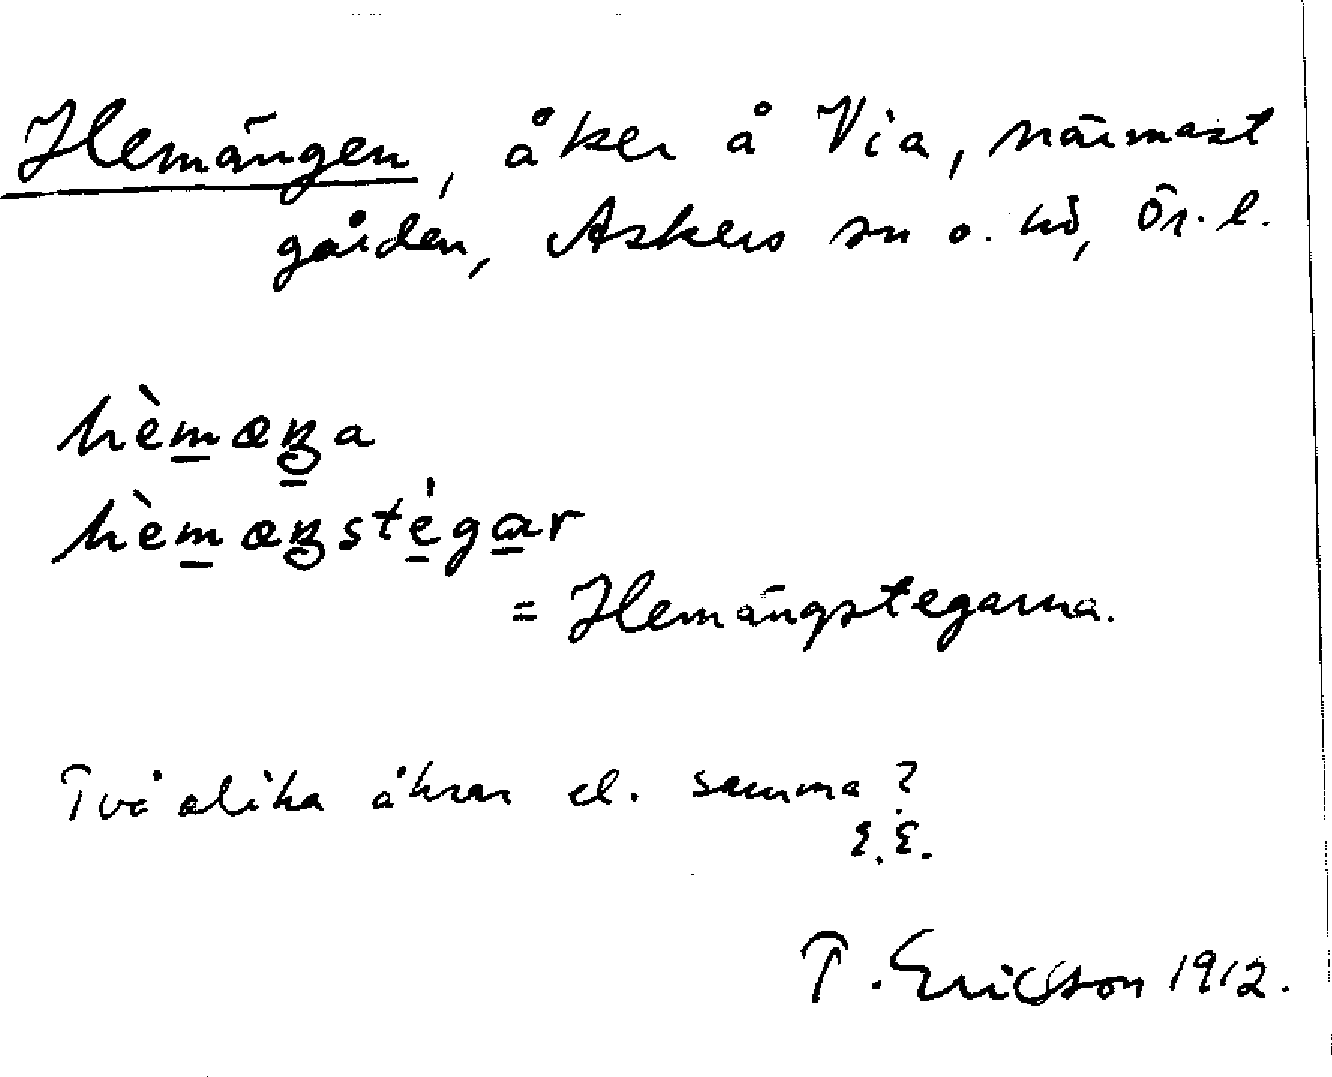 Hemängen, åker å Via, närmast
gården, Askers sn o. hd, Ör. l.
hèmæŋa
hèmæŋstégar
= Hemängstegarna.
Två olika åkrar el. samma?
E.E.
T. Ericsson 1912.